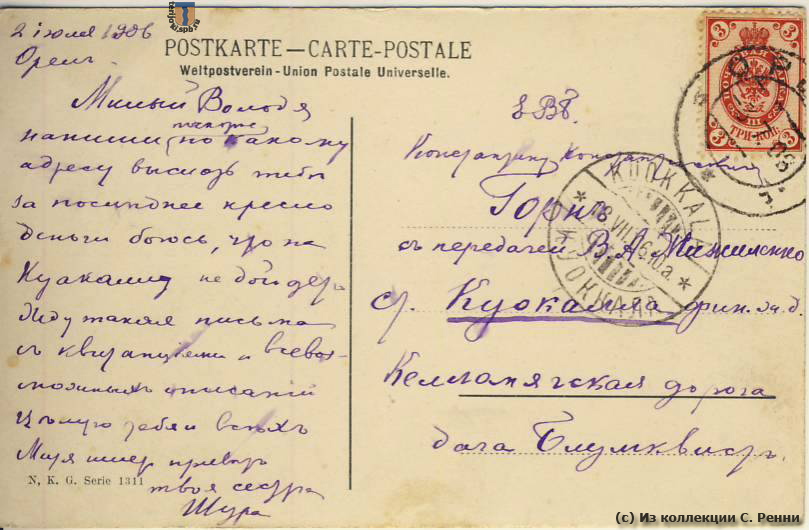 terijoki.spb.ru
2 іюля 1906
Орелъ
POSTKARTE – CARTE-POSTALE
Weltpostverein - Union Postale Universelle.
Милый Володя
напиши по какому
адресу выслать тебѣ
за последнее кресло
деньги боюсь, что на
Куокаллу не дойдетъ
Жду такая письма
съ квитанціями и всевоз-
можныхъ описаній
Цѣлую тебя и всѣхъ
Муся шлетъ приветъ
твоя сестра
Шура
N. K. G. Serie 1311
Е В Б.
Константину Константиновичу
Горнъ
съ передачей В. А. Мижиленко
ст. Куокалла фин. ж. д.
Келломякская дорога
дача Блумквистъ
3 3
ТРИ КОП.
3 3
KUOKKALA
18.VII.06.10a.
КУОККАЛА
(c) Из коллекции С. Ренни